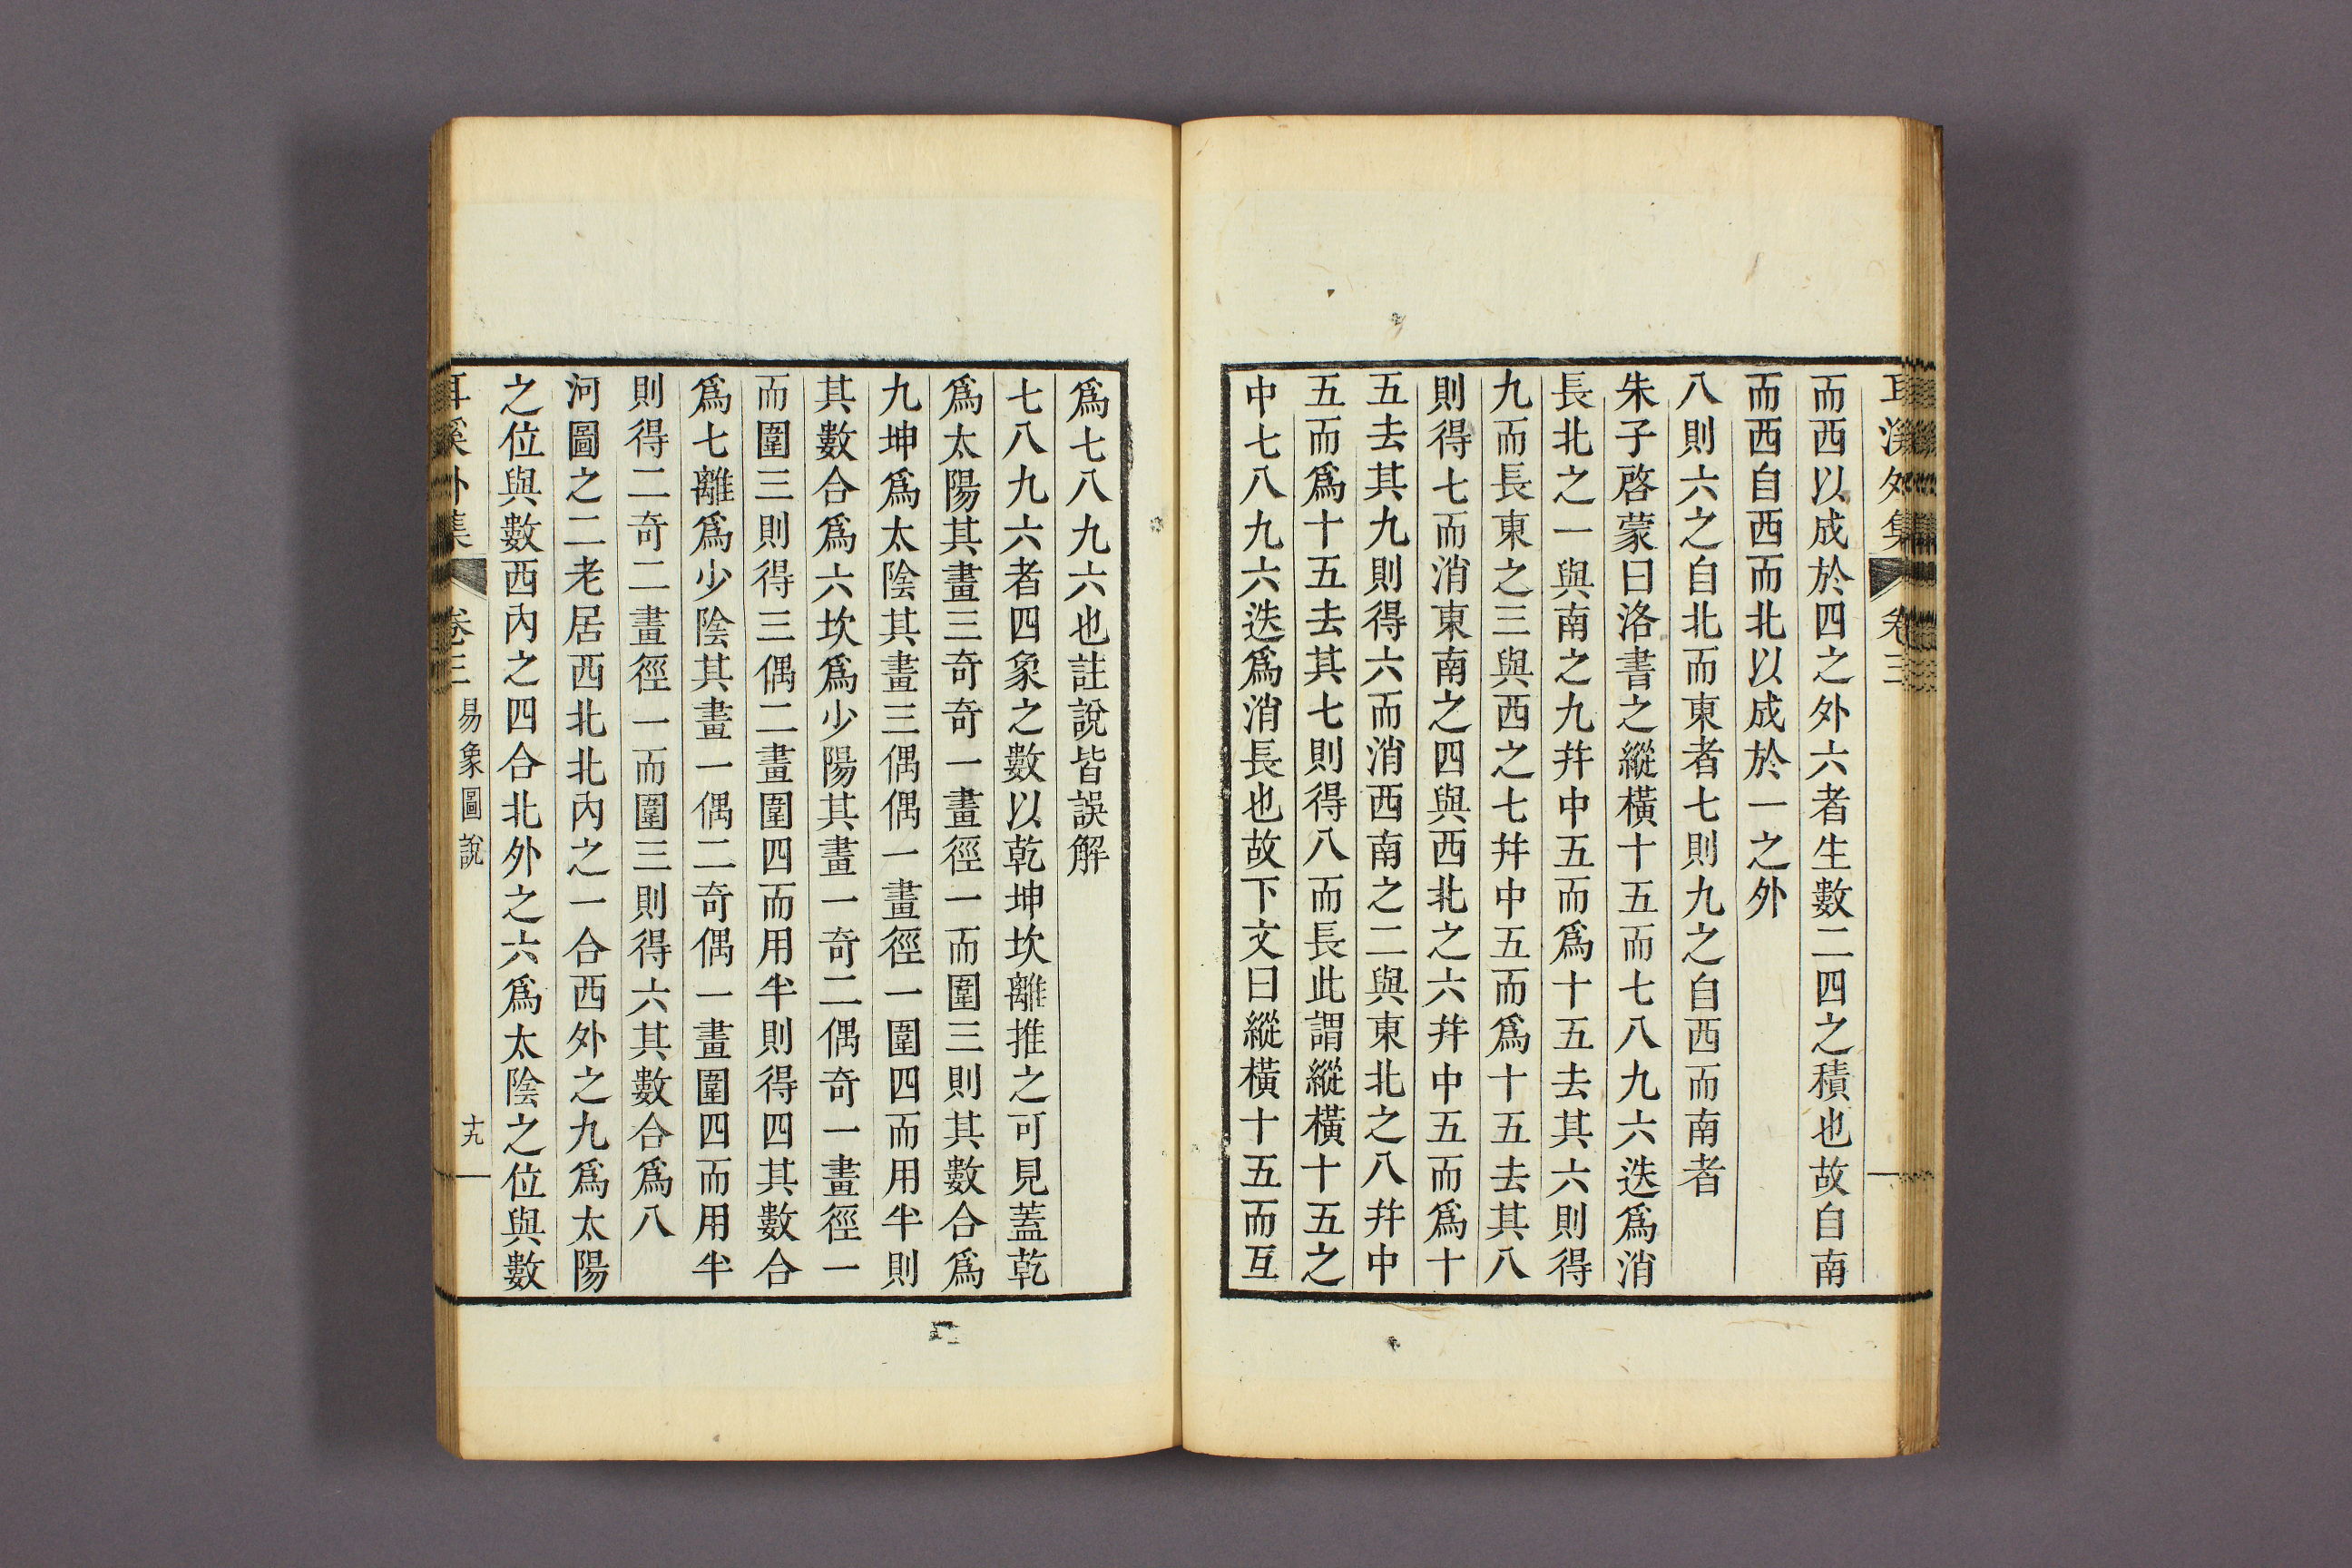 耳溪外集 卷三
而西以成於四之外六者生數二四之積也故自南
而西自西而北以成於一之外
八則六之自北而東者七則九之自西而南者
朱子啓蒙曰洛書之縱橫十五而七八九六迭爲消
長北之一與南之九幷中五而爲十五去其六則得
九而長東之三與西之七幷中五而爲十五去其八
則得七而消東南之四與西北之六幷中五而爲十
五去其九則得六而消西南之二與東北之八幷中
五而爲十五去其七則得八而長此謂縱橫十五之
中七八九六迭爲消長也故下文曰縱橫十五而互
爲七八九六也註說皆誤解
七八九六者四象之數以乾坤坎離推之可見蓋乾
爲太陽其畫三奇奇一畫徑一而圍三則其數合爲
九坤爲太陰其畫三偶偶一畫徑一圍四而用半則
其數合爲六坎爲少陽其畫一奇二偶奇一畫徑一
而圍三則得三偶二畫圍四而用半則得四其數合
爲七離爲少陰其畫一偶二奇偶一畫圍四而用半
則得二奇二畫徑一而圍三則得六其數合爲八
河圖之二老居西北北內之一合西外之九爲太陽
之位與數西內之四合北外之六爲太陰之位與數
耳溪外集 卷三 易象圖說 十九